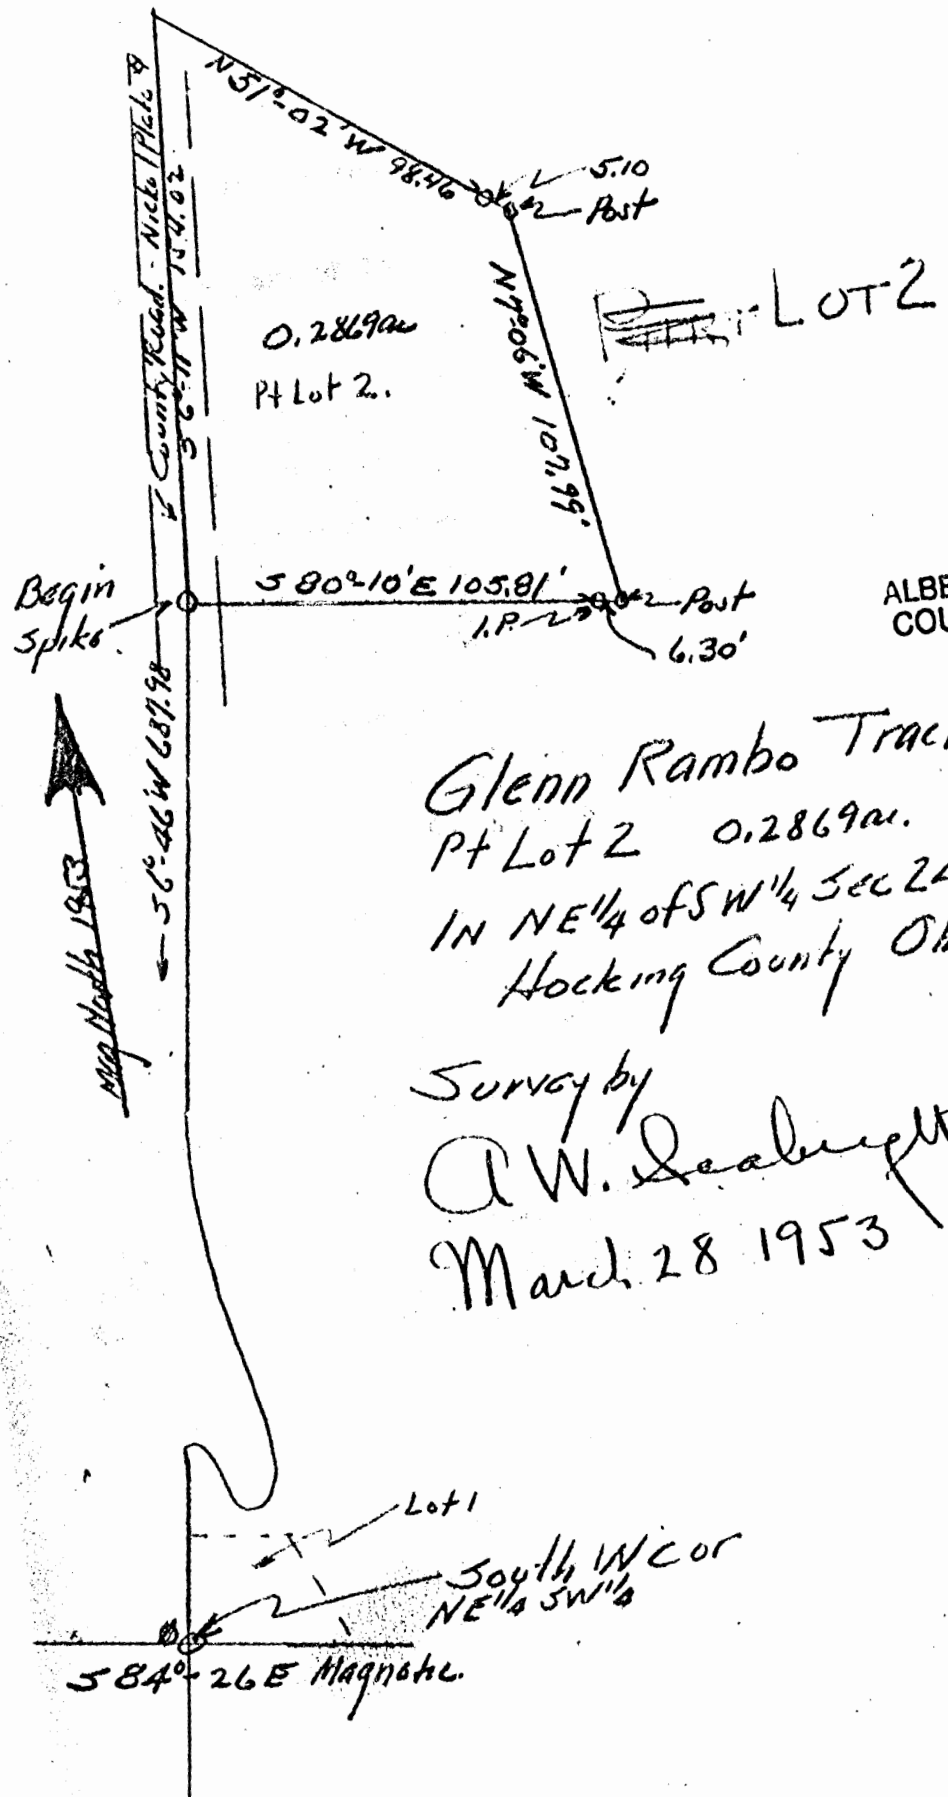 N 51°-02' W 98.46
5.10
Post
County Road -
S 6°-11' W 154.02
0.2869 ac
Pt Lot 2.
LOT 2
107.99'
Begin
Spike
S 80°-10' E 105.81'
I.P.
Post
6.30'
ALBE
COU
S 6°-46' W 687.98
Mag North 1953
Glenn Rambo Trac
Pt Lot 2 0.2869 ac.
IN NE 1/4 of SW 1/4 Sec 2
Hocking County Oh
Survey by
A W. Seabright
March 28 1953
Lot 1
South W cor
NE 1/4 SW 1/4
S 84°-26 E Magnetic.